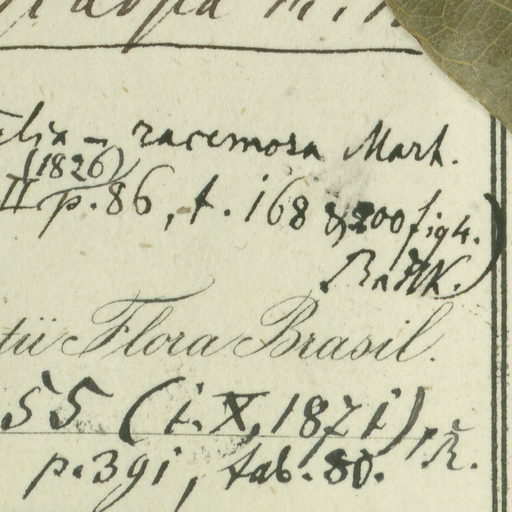 racemosa Mart.
(1826)
II p. 86, t. 168 & 200 fig 4.)
Flora Brasil.
55 (i. X. 1871),
p. 391, tab. 80.